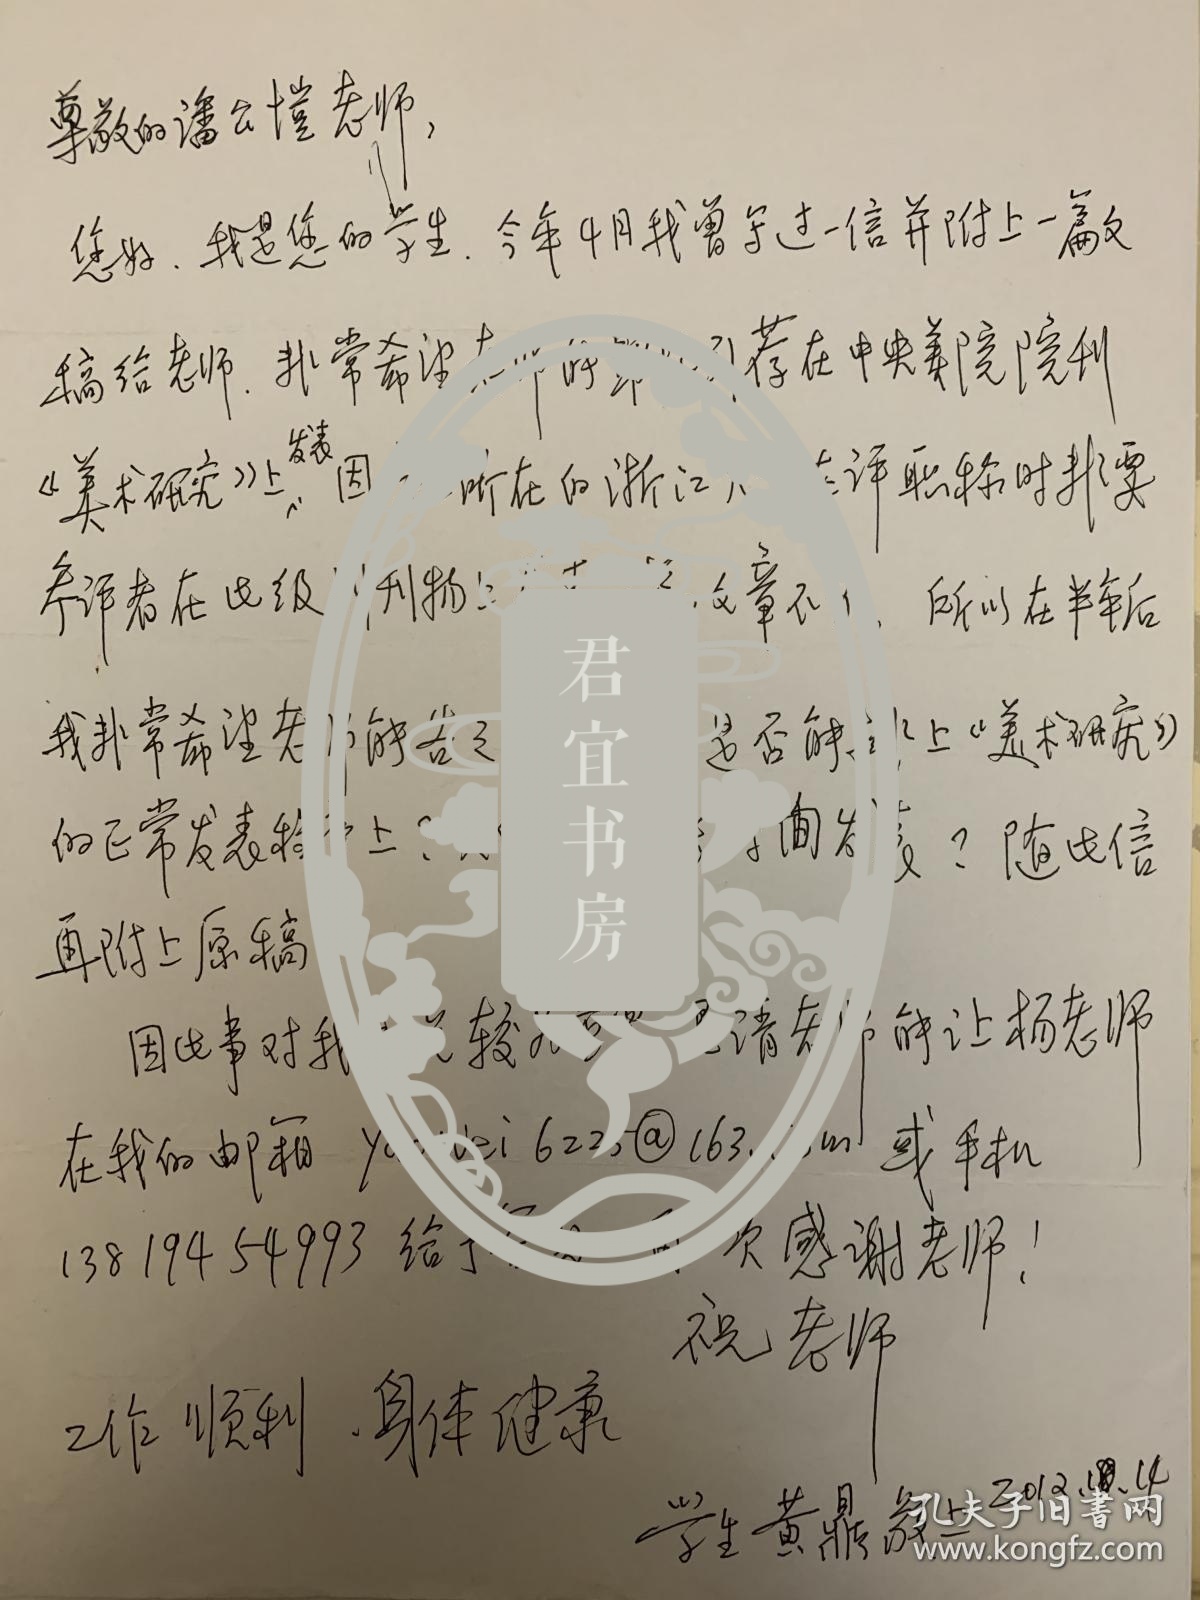 尊敬的潘公凯老师，
您好．我是您的学生．今年4月我曾写过一信并附上一篇文
稿给老师．非常希望老师能 荐在中央美院院刊
《美术研究》上发表 因 所在的浙江 评职称时非要
参评者在此级 刊物上 文章不 ．所以在半年后
我非常希望老师能告 是否能 上《美术研究》
的正常发表程序上？ 间发表？随此信
再附上原稿
因此事对我 说较为 请老师能让杨老师
在我的邮箱 6225@163.com 或手机
13819454993 给予 次感谢老师！
祝老师
工作顺利．身体健康
学生黄鼎敬上 2012. .14
君宜书房
孔夫子旧书网
www.kongfz.com